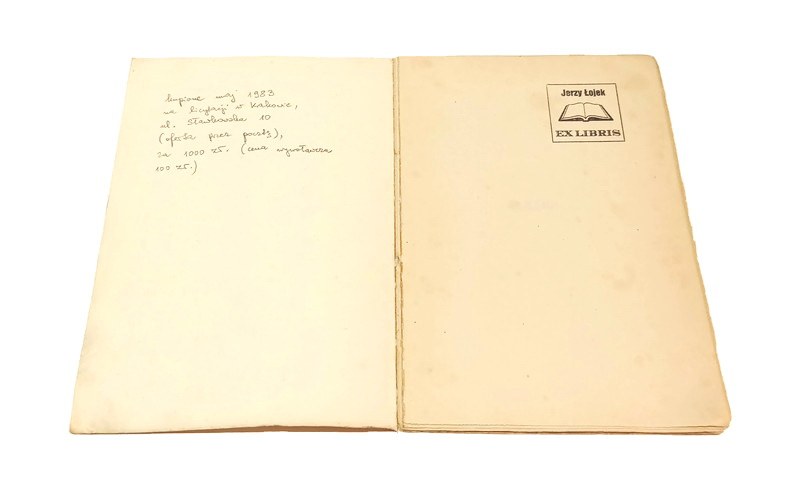 kupione maj 1983
na licytacji w Krakowie,
ul. Sławkowska 10
(oferta przez pocztę),
za 1000 zł. (cena wywoławcza
100 zł.)
Jerzy Łojek
EX LIBRIS